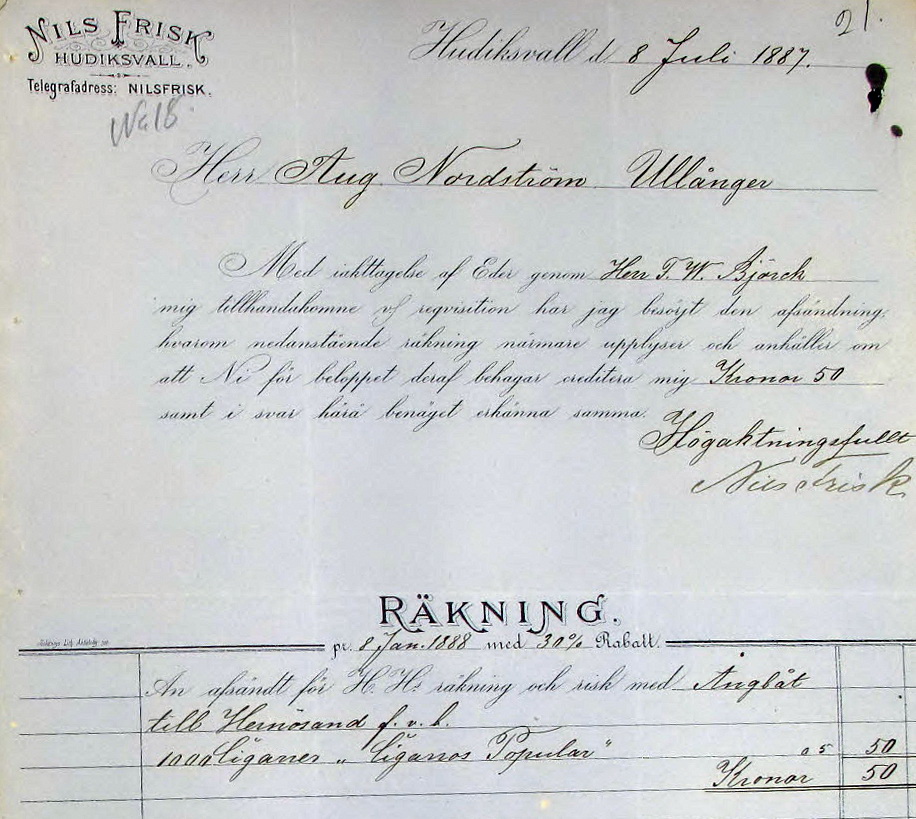 21.
NILS FRISK
HUDIKSVALL.
Telegrafadress: NILSFRISK.
Hudiksvall d. 8 Juli 1887.
Herr Aug. Nordström Ullånger
Med iakttagelse af Eder genom Herr F. W. Björck
mig tillhandakomne requisition har jag besörjt den afsändning,
hvarom nedanstående räkning närmare upplyser och anhåller om
att Ni för beloppet deraf behagar creditera mig Kronor 50
samt i svar härå benäget erkänna samma.
Högaktningsfullt
Nils Frisk
RÄKNING.
pr. 8 Jan. 1888 med 30% Rabatt.
An afsändt för H. H: räkning och risk med Ångbåt
till Hernösand f. v. b.
1000 Ciganer „ Ciganos Popular" 05 50
Kronor 50